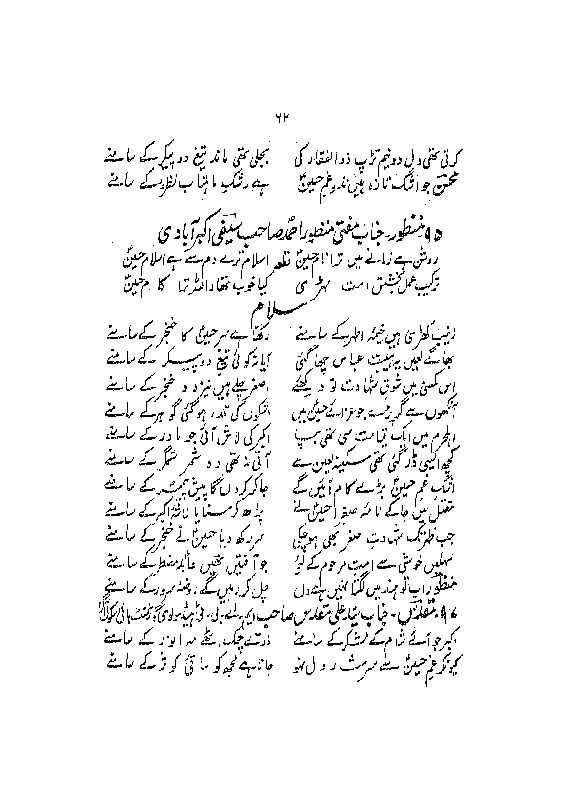 ۶۲
کرتی تھی دل دو نیم تڑپ ذوالفقار کی بجلی تھی ماند تیغ دو پیکر کے سامنے
محسن جو اشک تازہ ہیں نذر غم حسینؑ ہے رشک ماہتاب نظر کے سامنے
۹۵ منظور۔ جناب مفتی منظور احمد صاحب سیفی اکبرآبادی
روشن ہے زمانے میں ترا نام حسینؑ اسلام ترے دم سے ہے اسلام حسینؑ
ترکیب عمل بخشش امت ٹھہری کیا خوب تھا اللہ ترا کام حسینؑ
سلام
زینب کھڑی ہیں خیمہ اطہر کے سامنے رکھا ہے سر حسینؑ کا خنجر کے سامنے
بھاگے لعیں یہ ہیبت عباس چھا گئی آیا نہ کوئی تیغ دو پیکر کے سامنے
اس کمسنی میں شوق شہادت تو دیکھئے اصغر چلے ہیں نیزہ و خنجر کے سامنے
آنکھوں سے گر پڑے جو عزائے حسینؑ میں اشکوں کی قدر ہو گئی گوہر کے سامنے
اہل حرم میں ایک قیامت سی تھی بپا اکبر کی لاش آئی جو مادر کے سامنے
کچھ ایسی ڈر گئی تھی سکینہ لعین سے آتی نہ تھی وہ شمر ستمگر کے سامنے
اشک غم حسینؑ بڑے کام آئیں گے جا کر کروں گا پیش پیمبر کے سامنے
مقتل میں جا کے نامۂ صغرا حسینؑ نے پڑھ کر سنایا لاشۂ اکبر کے سامنے
جب ظہر تک شہادت صغر بھی ہو چکی سر رکھ دیا حسینؑ نے خنجر کے سامنے
جھیلیں خوشی سے امت مرحوم کے لئے جو آفتیں تھیں عابد مضطر کے سامنے
منظور اب تو ہند میں لگتا نہیں ہے دل چل کر رہیں گے روضۂ سرور کے سامنے
۹۶ مقدس۔ جناب سید علی مقدس صاحب ایم اے، بی ٹی، ہیڈ مولوی گورنمنٹ ہائی اسکول
اکبر جو آئے شام کے لشکر کے سامنے ذرے چمک اٹھے مہ انور کے سامنے
کیونکر غم حسینؑ سے سرشار دل نہ ہو جانا ہے مجھ کو ساقی کوثر کے سامنے